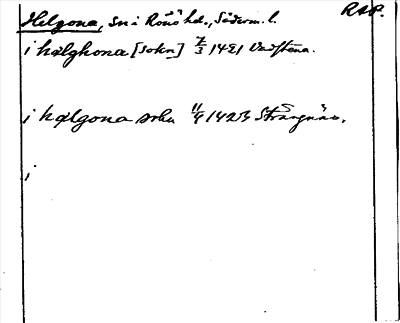 RAP.
Helgona, sn i Rönö hd., Söderm. l.
i hælghona [sokn] 7/3 1421 Vadstena.
i hælgona sokn 11/9 1423 Strängnäs.
i